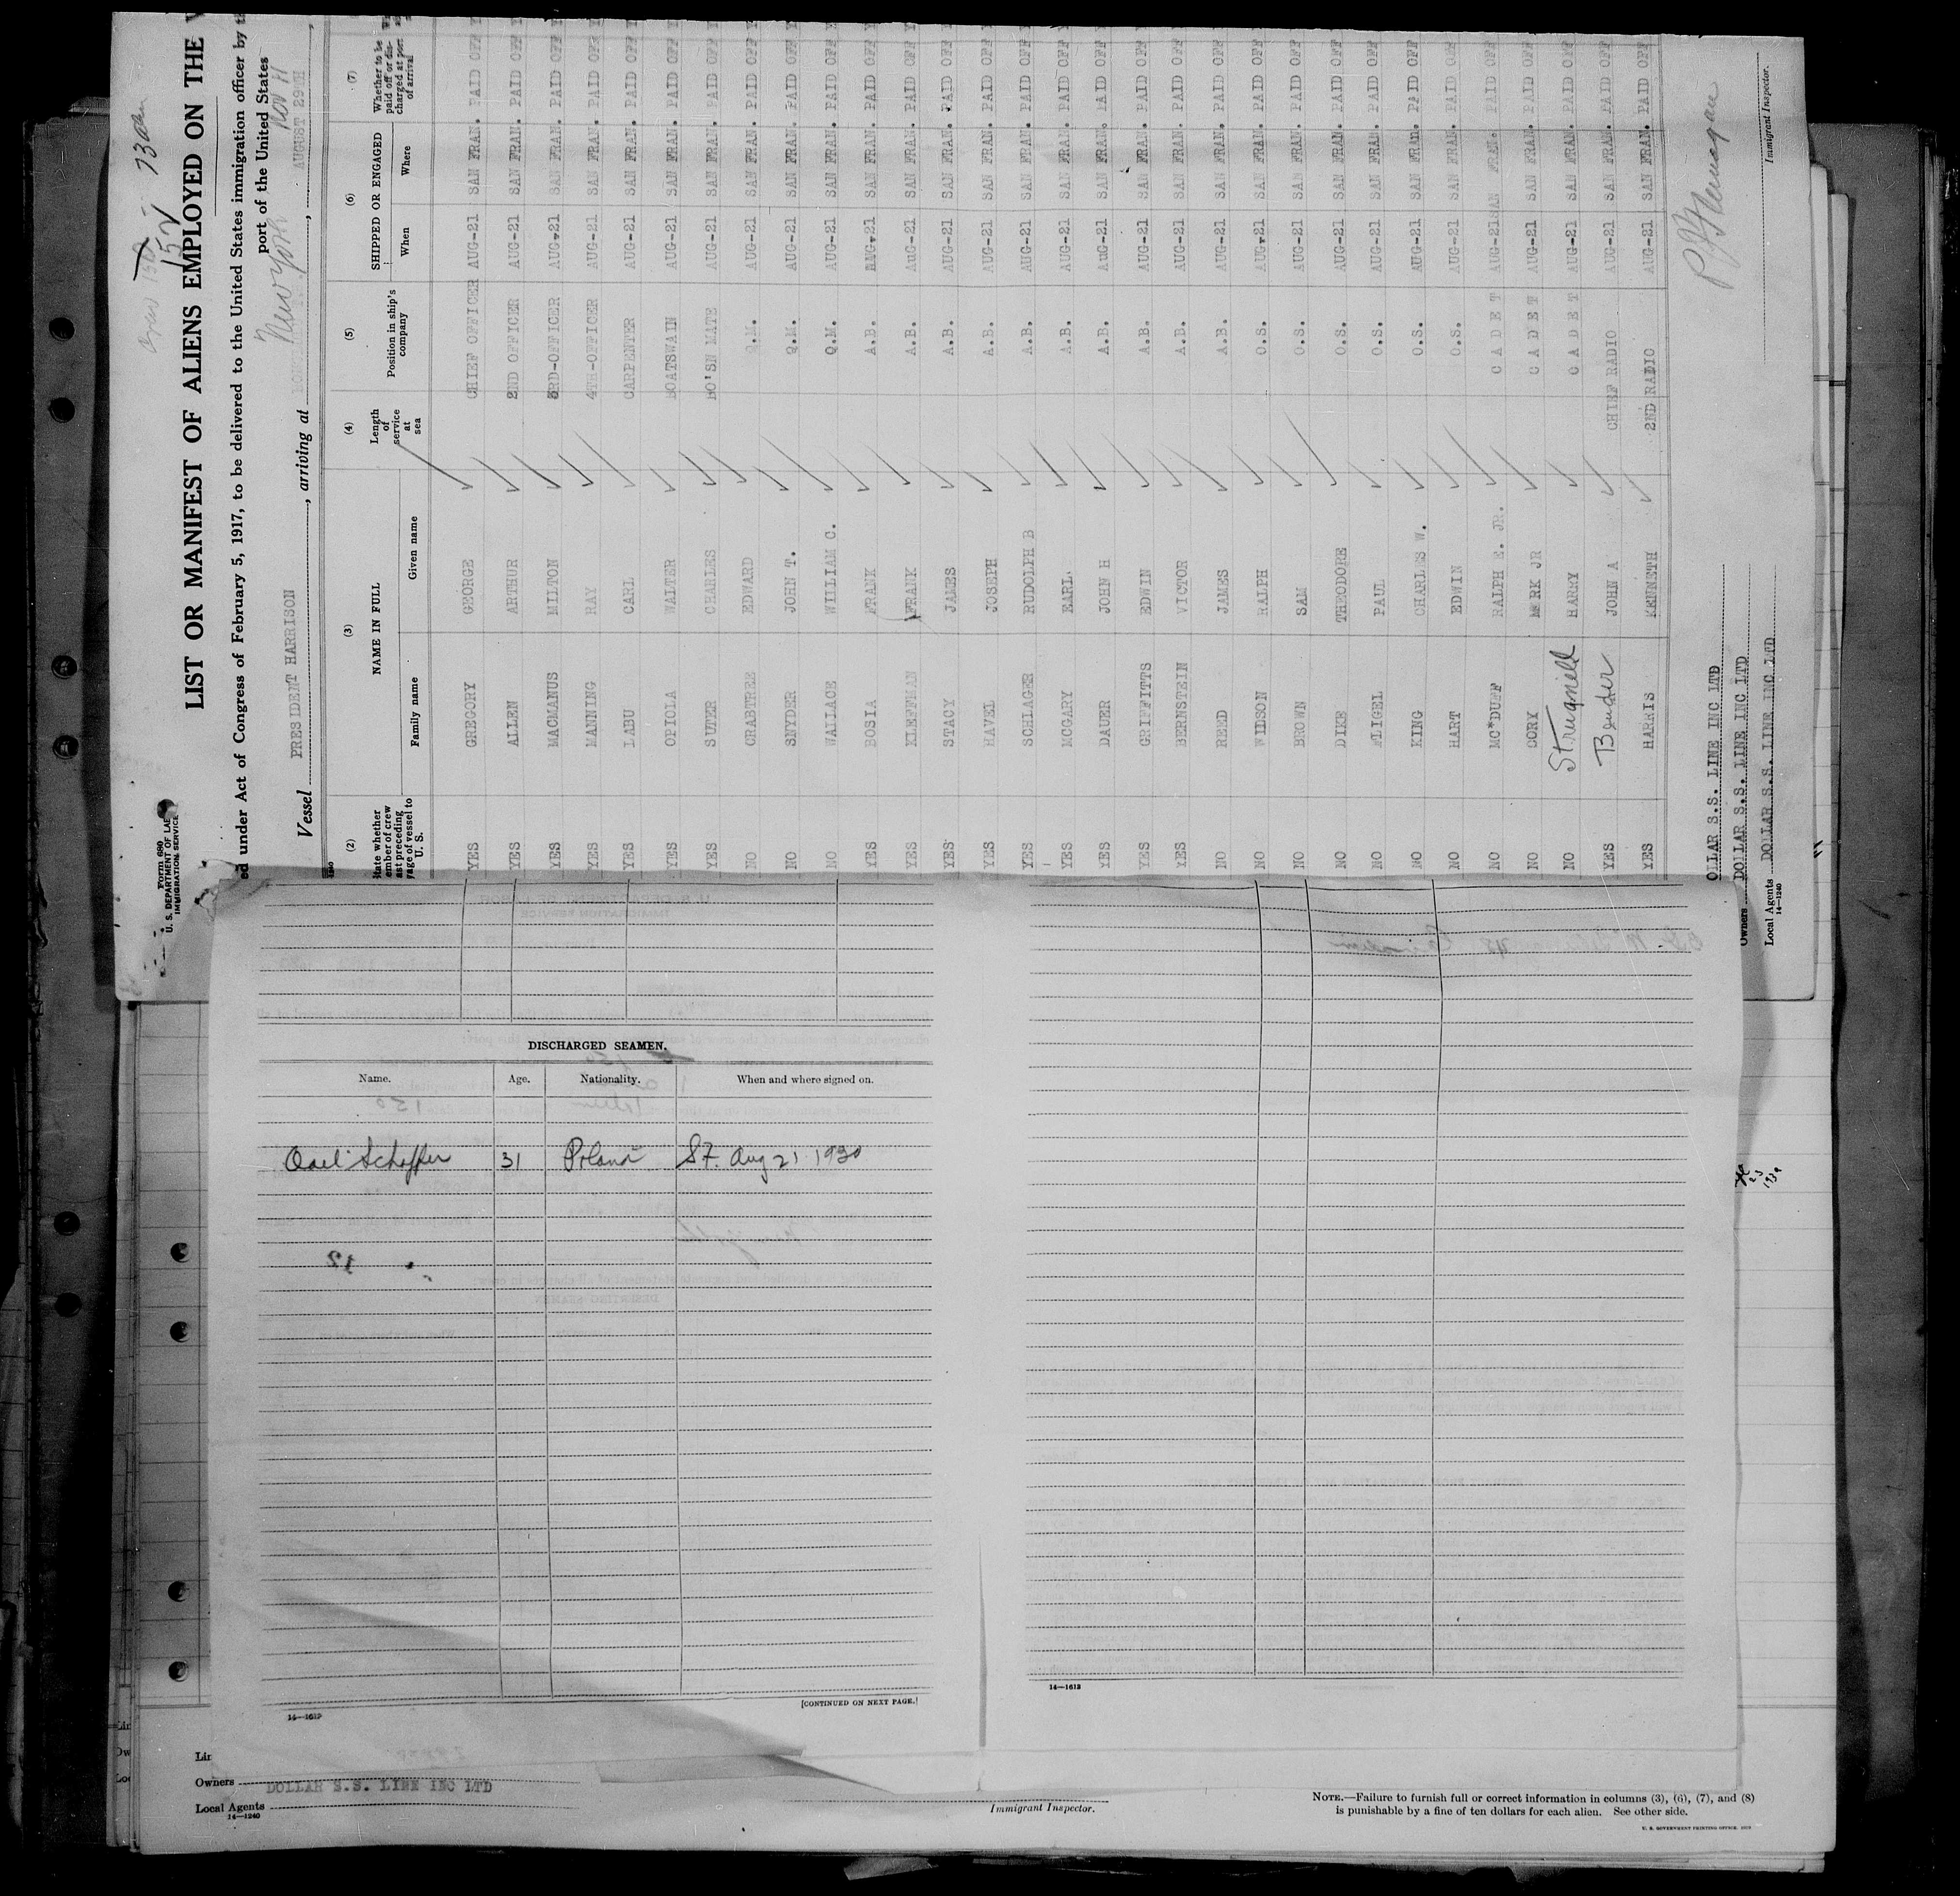 Form 680
U. S. DEPARTMENT OF LAB
IMMIGRATION SERVICE
1502
152
730am
LIST OR MANIFEST OF ALIENS EMPLOYED ON THE
ed under Act of Congress of February 5, 1917, to be delivered to the United States immigration officer by
port of the United States
Vessel PRESIDENT HARRISON, arriving at New York, Nov 11
AUGUST 29TH
(2) (3) (4) (5) (6) (7)
tate whether
ember of crew
ast preceding
yage of vessel to
U. S.
NAME IN FULL
Family name Given name
Length
of
service
at
sea
Position in ship's
company
SHIPPED OR ENGAGED
When Where
Whether to be
paid off or dis-
charged at port
of arrival
YES GREGORY GEORGE CHIEF OFFICER AUG-21 SAN FRAN. PAID OFF
YES ALLEN ARTHUR 2ND OFFICER AUG-21 SAN FRAN. PAID OFF
YES MACMANUS MILTON 3RD-OFFICER AUG-21 SAN FRAN. PAID OFF
YES MANNING RAY 4TH-OFFICER AUG-21 SAN FRAN. PAID OFF
YES LABU CARL CARPENTER AUG-21 SAN FRAN. PAID OFF
YES OPIOLA WALTER BOATSWAIN AUG-21 SAN FRAN. PAID OFF
YES SUTER CHARLES BO'SN MATE AUG-21 SAN FRAN. PAID OFF
NO CRABTREE EDWARD Q.M. AUG-21 SAN FRAN. PAID OFF
NO SNYDER JOHN T. Q.M. AUG-21 SAN FRAN. PAID OFF
NO WALLACE WILLIAM C. Q.M. AUG-21 SAN FRAN. PAID OFF
YES BOSIA FRANK A.B. AUG-21 SAN FRAN. PAID OFF
YES KLEFFMAN FRANK A.B. AUG-21 SAN FRAN. PAID OFF
YES STACY JAMES A.B. AUG-21 SAN FRAN. PAID OFF
YES HAVEL JOSEPH A.B. AUG-21 SAN FRAN. PAID OFF
YES SCHLAGER RUDOLPH B A.B. AUG-21 SAN FRAN. PAID OFF
YES MCGARY EARL. A.B. AUG-21 SAN FRAN. PAID OFF
YES DAUER JOHN H A.B. AUG-21 SAN FRAN. PAID OFF
YES GRIFFITTS EDWIN A.B. AUG-21 SAN FRAN. PAID OFF
YES BERNSTEIN VICTOR A.B. AUG-21 SAN FRAN. PAID OFF
NO REED JAMES A.B. AUG-21 SAN FRAN. PAID OFF
NO WILSON RALPH O.S. AUG-21 SAN FRAN. PAID OFF
NO BROWN SAM O.S. AUG-21 SAN FRAN. PAID OFF
NO DIKE THEODORE O.S. AUG-21 SAN FRAN. PAID OFF
NO FLIGEL PAUL O.S. AUG-21 SAN FRAN. PAID OFF
NO KING CHARLES W. O.S. AUG-21 SAN FRAN. PAID OFF
NO HART EDWIN O.S. AUG-21 SAN FRAN. PAID OFF
NO MC*DUFF RALPH E. JR. CADET AUG-21 SAN FRAN. PAID OFF
NO CORY MARK JR CADET AUG-21 SAN FRAN. PAID OFF
NO Strugnell HARRY CADET AUG-21 SAN FRAN. PAID OFF
YES Bender JOHN A CHIEF RADIO AUG-21 SAN FRAN. PAID OFF
YES HARRIS KENNETH 2ND RADIO AUG-21 SAN FRAN. PAID OFF
OLLAR S.S. LINE INC LTD
Owners DOLLAR S.S. LINE INC LTD
Local Agents DOLLAR S.S. LINE INC LTD
14—1240
Immigrant Inspector.
DISCHARGED SEAMEN.
Name. Age. Nationality. When and where signed on.
Carl Schaffer 31 Poland S.F. Aug 21 1930
[CONTINUED ON NEXT PAGE.]
14—1613
14—1613
Lin
Owners DOLLAR S.S. LINE INC LTD
Local Agents
14—1240
Immigrant Inspector.
NOTE.—Failure to furnish full or correct information in columns (3), (6), (7), and (8)
is punishable by a fine of ten dollars for each alien. See other side.
U. S. GOVERNMENT PRINTING OFFICE